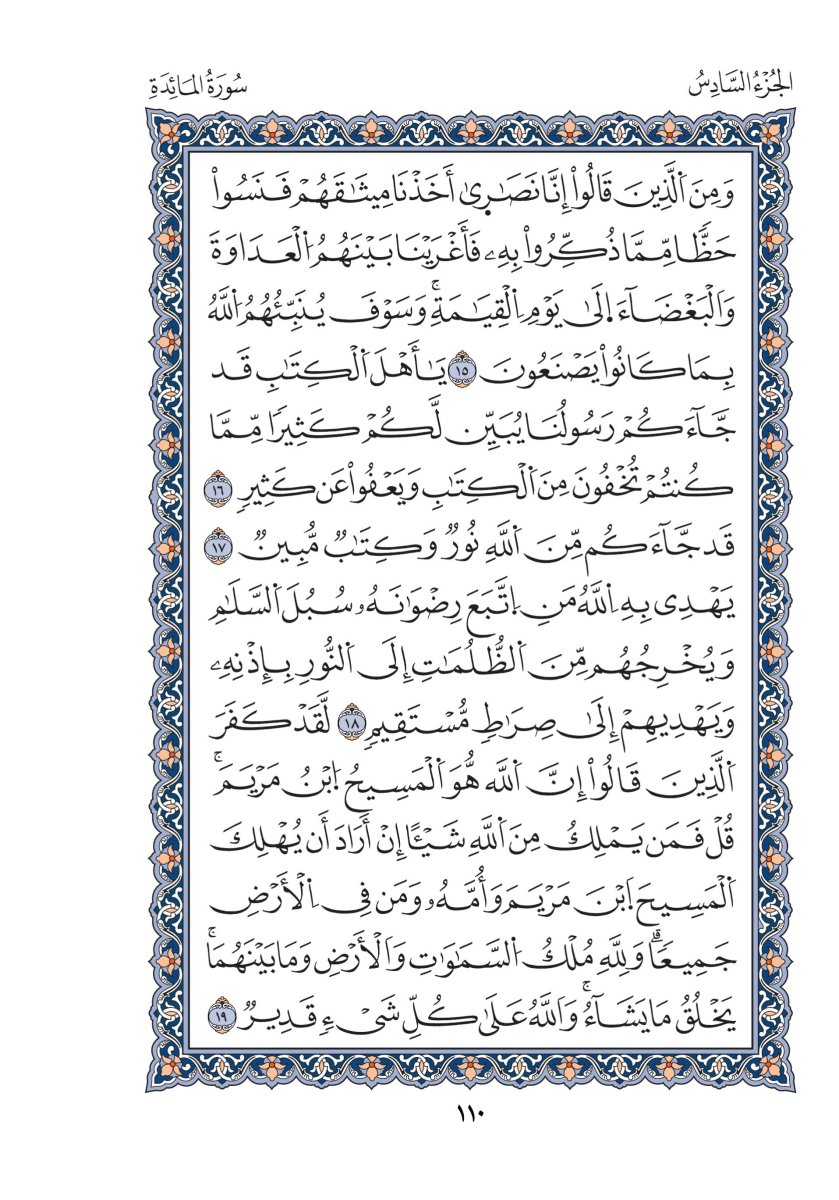 الجُزْءُ السَّادِسُ
سُورَةُ المَائِدَةِ
وَمِنَ اَ۬لَّذِينَ قَالُوٓاْ إِنَّا نَصَٰر۪ىٰٓ أَخَذْنَا مِيثَٰقَهُمْ فَنَسُواْ
حَظّٗا مِّمَّا ذُكِّرُواْ بِهِۦ فَأَغْرَيْنَا بَيْنَهُمُ اُ۬لْعَدَاوَةَ
وَالْبَغْضَآءَ اِ۪لَىٰ يَوْمِ اِ۬لْقِيَٰمَةِۚ وَسَوْفَ يُنَبِّئُهُمُ اُ۬للَّهُ
بِمَا كَانُواْ يَصْنَعُونَ ١٥ يَٰٓأَهْلَ اَ۬لْكِتَٰبِ قَد
جَّآءَكُمْ رَسُولُنَا يُبَيِّن لَّكُمْ كَثِيرٗا مِّمَّا
كُنتُمْ تُخْفُونَ مِنَ اَ۬لْكِتَٰبِ وَيَعْفُواْ عَن كَثِيرٖ ١٦
قَد جَّآءَكُم مِّنَ اَ۬للَّهِ نُورٞ وَكِتَٰبٞ مُّبِينٞ ١٧
يَهْدِى بِهِ اِ۬للَّهُ مَنِ اِ۪تَّبَعَ رِضْوَٰنَهُۥ سُبُلَ اَ۬لسَّلَٰمِ
وَيُخْرِجُهُم مِّنَ اَ۬لظُّلُمَٰتِ إِلَى اَ۬لنُّورِ بِإِذْنِهِۦ
وَيَهْدِيهِمْ إِلَىٰ صِرَٰطٖ مُّسْتَقِيمٖ ١٨ لَّقَدْ كَفَرَ
اَ۬لَّذِينَ قَالُوٓاْ إِنَّ اَ۬للَّه هُّوَ اَ۬لْمَسِيحُ اُ۪بْنُ مَرْيَمَۚ
قُلْ فَمَن يَمْلِكُ مِنَ اَ۬للَّهِ شَيْـًٔا إِنْ أَرَادَ أَن يُهْلِكَ
اَ۬لْمَسِيحَ اَ۪بْنَ مَرْيَمَ وَأُمَّهُۥ وَمَن فِى اِ۬لْأَرْضِ
جَمِيعٗاۗ وَلِلَّهِ مُلْكُ اُ۬لسَّمَٰوَٰتِ وَالْأَرْضِ وَمَا بَيْنَهُمَاۚ
يَخْلُقُ مَا يَشَآءُۚ وَاللَّهُ عَلَىٰ كُلِّ شَىْءٖ قَدِيرٞ ١٩
١١٠